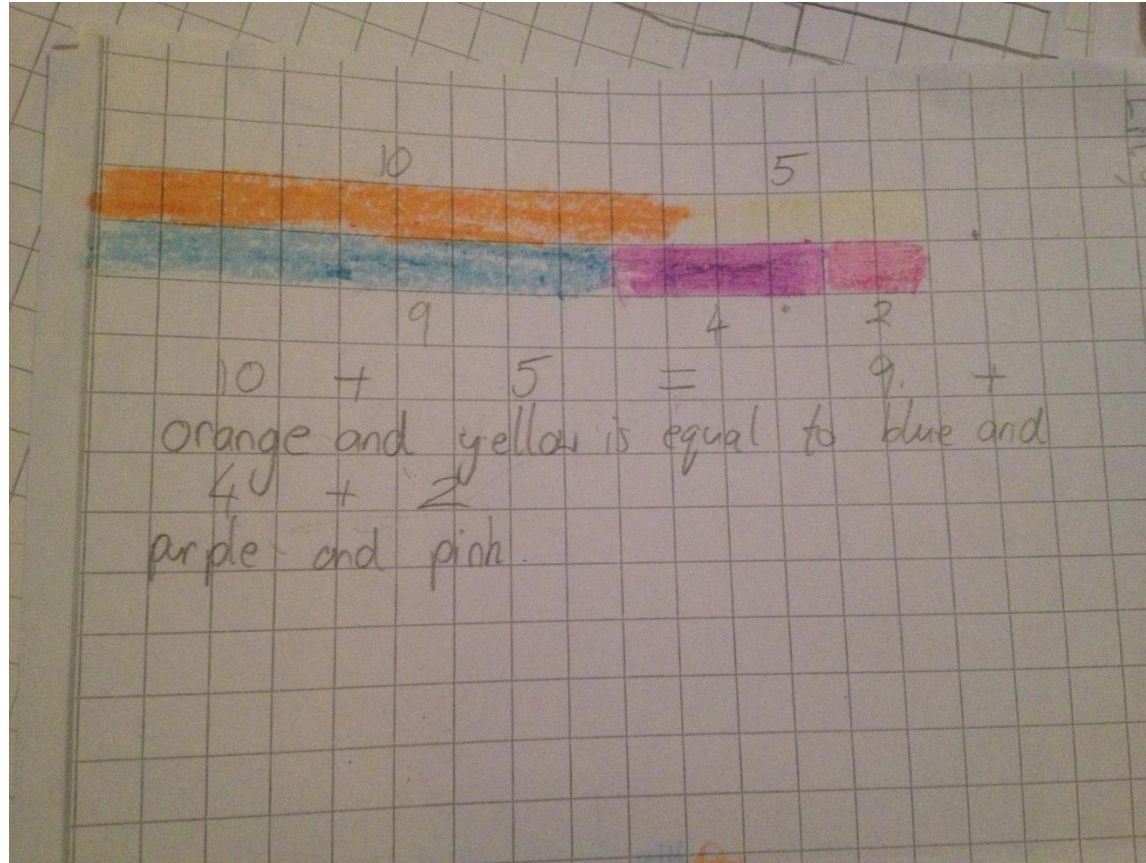 10 5
9 4 2
10 + 5 = 9 +
orange and yellow is equal to blue and
4 + 2
purple and pink.